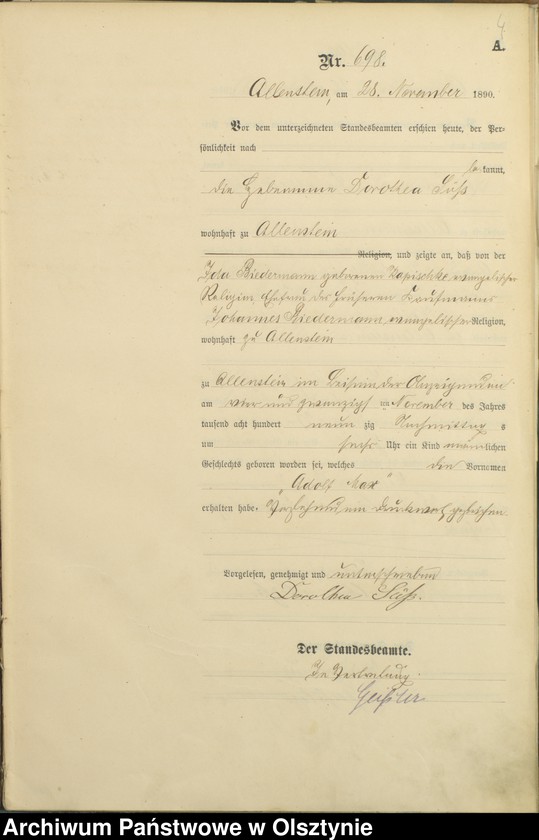 4
A.
Nr. 698.
Allenstein, am 28. November 1890.
Vor dem unterzeichneten Standesbeamten erschien heute, der Per-
sönlichkeit nach
bekannt,
die Hebamme Dorothea Süß
wohnhaft zu Allenstein
Religion, und zeigte an, daß von der
Ida Biedermann geborenen evangelischer
Religion Ehefrau des früheren Kaufmanns
Johannes Biedermann, evangelischer Religion,
wohnhaft zu Allenstein
zu Allenstein im Beisein der Anzeigenden
am vier und zwanzigsten November des Jahres
tausend acht hundert neun zig Nachmittags
um sechs Uhr ein Kind männlichen
Geschlechts geboren worden sei, welches den Vornamen
„Adolf Max“
erhalten habe. Vorstehend ein Druckwort gestrichen.
Vorgelesen, genehmigt und unterschrieben
Dorothea Süß.
Der Standesbeamte.
In Vertretung.
Archiwum Państwowe w Olsztynie